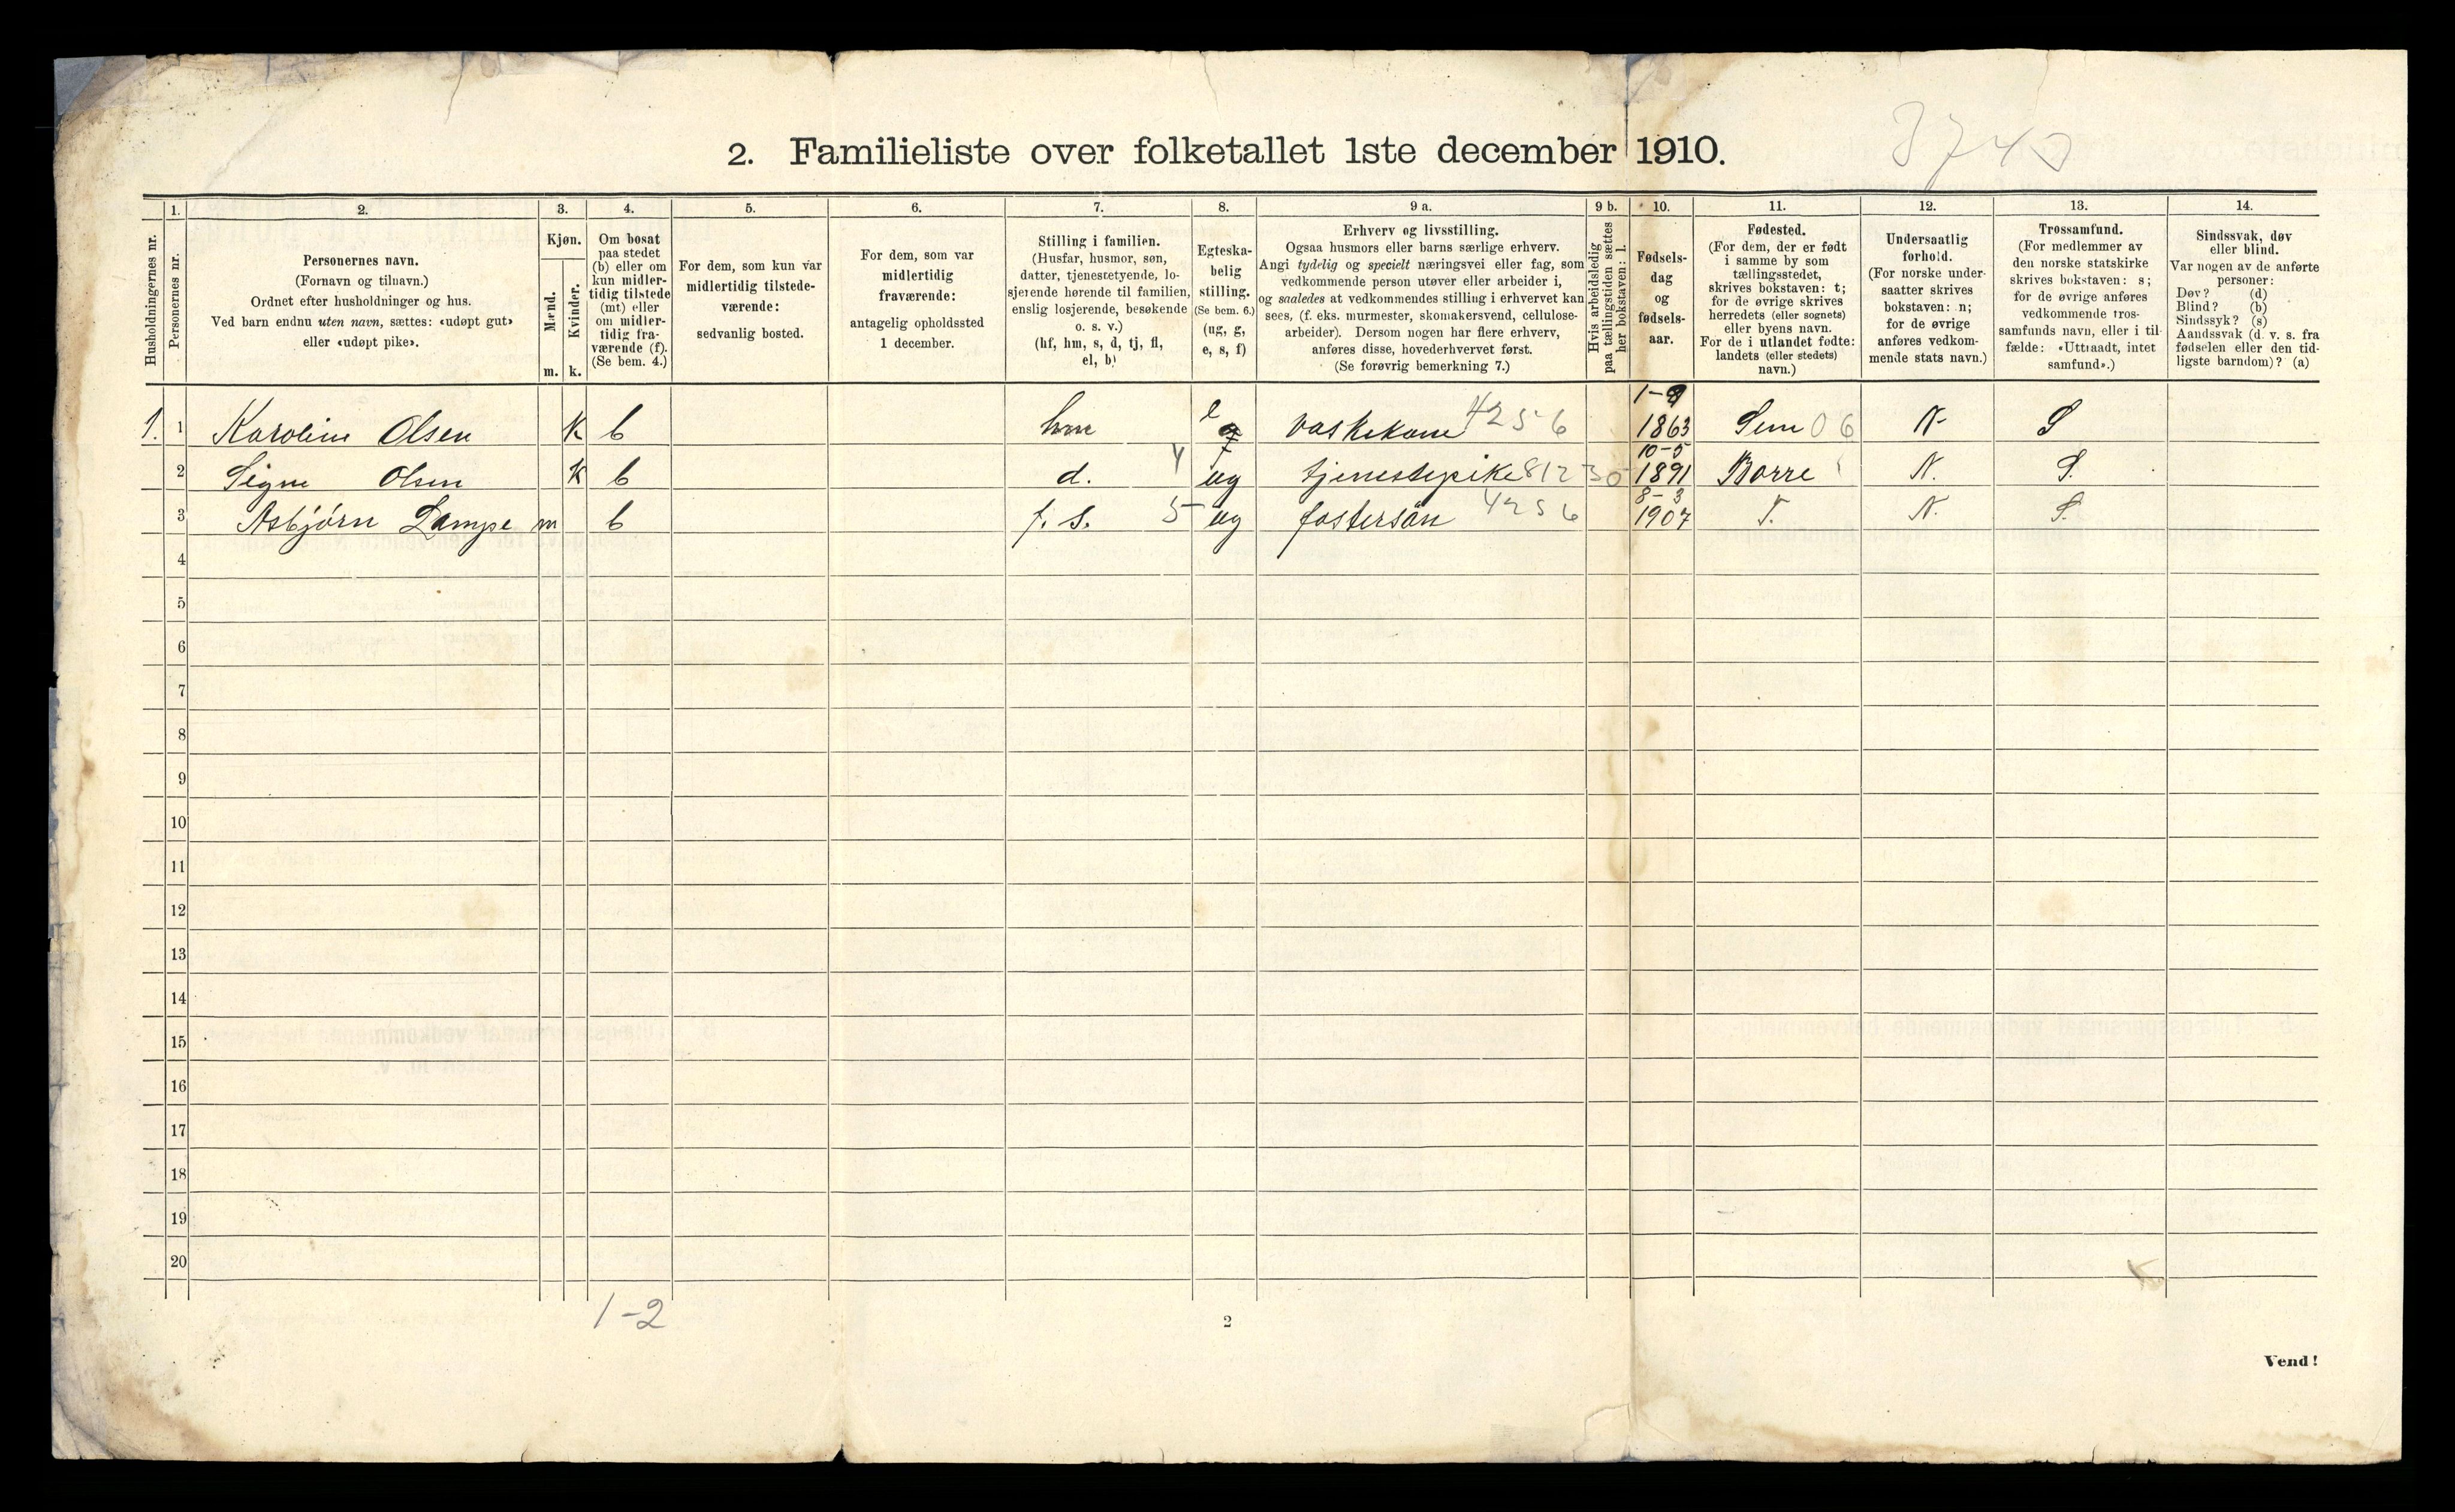 3740
2. Familieliste over folketallet 1ste december 1910.
1. 2. 3. 4. 5. 6. 7. 8. 9 a. 9 b. 10. 11. 12. 13. 14.
Husholdningernes nr.
Personernes nr.
Personernes navn.
(Fornavn og tilnavn.)
Ordnet efter husholdninger og hus.
Ved barn endnu uten navn, sættes: «udøpt gut»
eller «udøpt pike».
Kjøn.
Mænd.
Kvinder.
m. k.
Om bosat
paa stedet
(b) eller om
kun midler-
tidig tilstede
(mt) eller
om midler-
tidig fra-
værende (f).
(Se bem. 4.)
For dem, som kun var
midlertidig tilstede-
værende:
sedvanlig bosted.
For dem, som var
midlertidig
fraværende:
antagelig opholdssted
1 december.
Stilling i familien.
(Husfar, husmor, søn,
datter, tjenestetyende, lo-
sjerende hørende til familien,
enslig losjerende, besøkende
o. s. v.)
(hf, hm, s, d, tj, fl,
el, b)
Egteska-
belig
stilling.
(Se bem. 6.)
(ug, g,
e, s, f)
Erhverv og livsstilling.
Ogsaa husmors eller barns særlige erhverv.
Angi tydelig og specielt næringsvei eller fag, som
vedkommende person utøver eller arbeider i,
og saaledes at vedkommendes stilling i erhvervet kan
sees, (f. eks. murmester, skomakersvend, cellulose-
arbeider). Dersom nogen har flere erhverv,
anføres disse, hovederhvervet først.
(Se forøvrig bemerkning 7.)
Hvis arbeidsledig
paa tællingstiden sættes
her bokstaven: l.
Fødsels-
dag
og
fødsels-
aar.
Fødested.
(For dem, der er født
i samme by som
tællingsstedet,
skrives bokstaven: t;
for de øvrige skrives
herredets (eller sognets)
eller byens navn.
For de i utlandet fødte:
landets (eller stedets)
navn.)
Undersaatlig
forhold.
(For norske under-
saatter skrives
bokstaven: n;
for de øvrige
anføres vedkom-
mende stats navn.)
Trossamfund.
(For medlemmer av
den norske statskirke
skrives bokstaven: s;
for de øvrige anføres
vedkommende tros-
samfunds navn, eller i til-
fælde: «Uttraadt, intet
samfund».)
Sindssvak, døv
eller blind.
Var nogen av de anførte
personer:
Døv? (d)
Blind? (b)
Sindssyk? (s)
Aandssvak (d. v. s. fra
fødselen eller den tid-
ligste barndom)? (a)
1. 1 Karoline Olsen K b hm e vaskekone 4256 1863 Sem 06 N S
2 Signe Olsen K b d. 4 ug tjenestepike 812 30 10-5 1891 Borre N. S.
3 Asbjørn Lampe m b f. s. 5 ug fostersøn 4256 8-3 1907 T. N. S.
4
5
6
7
8
9
10
11
12
13
14
15
16
17
18
19
20
1-2
2
Vend!